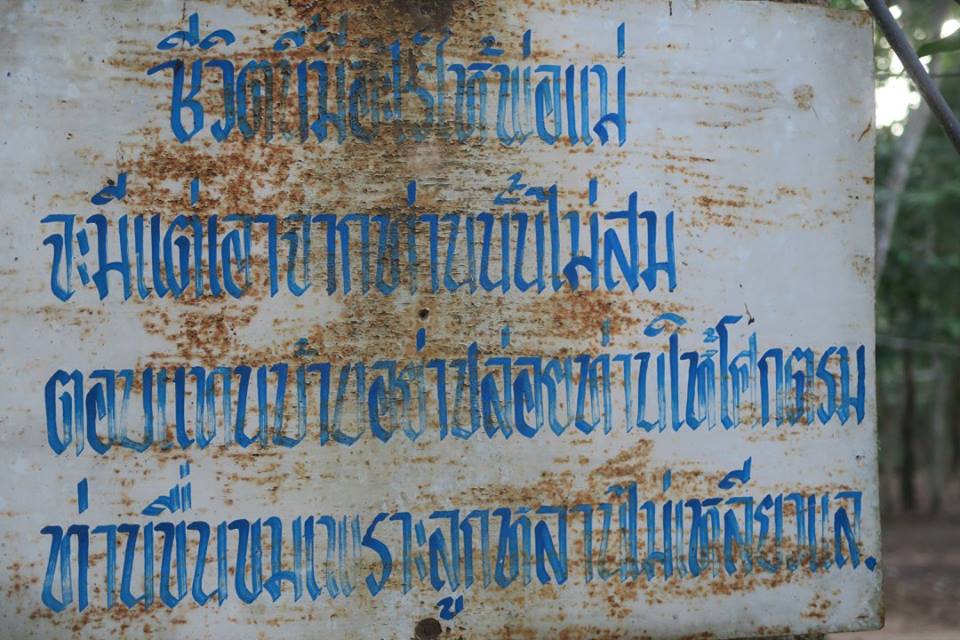 ชีวิตที่มีอยู่ได้พ่อแม่
จะมีแต่เอาจากท่านนั้นไม่สม
ตอบแทนบ้างอย่าปล่อยท่านให้โศกตรม
ท่านขื่นขมเพราะลูกหลานไม่เหลียวแล.